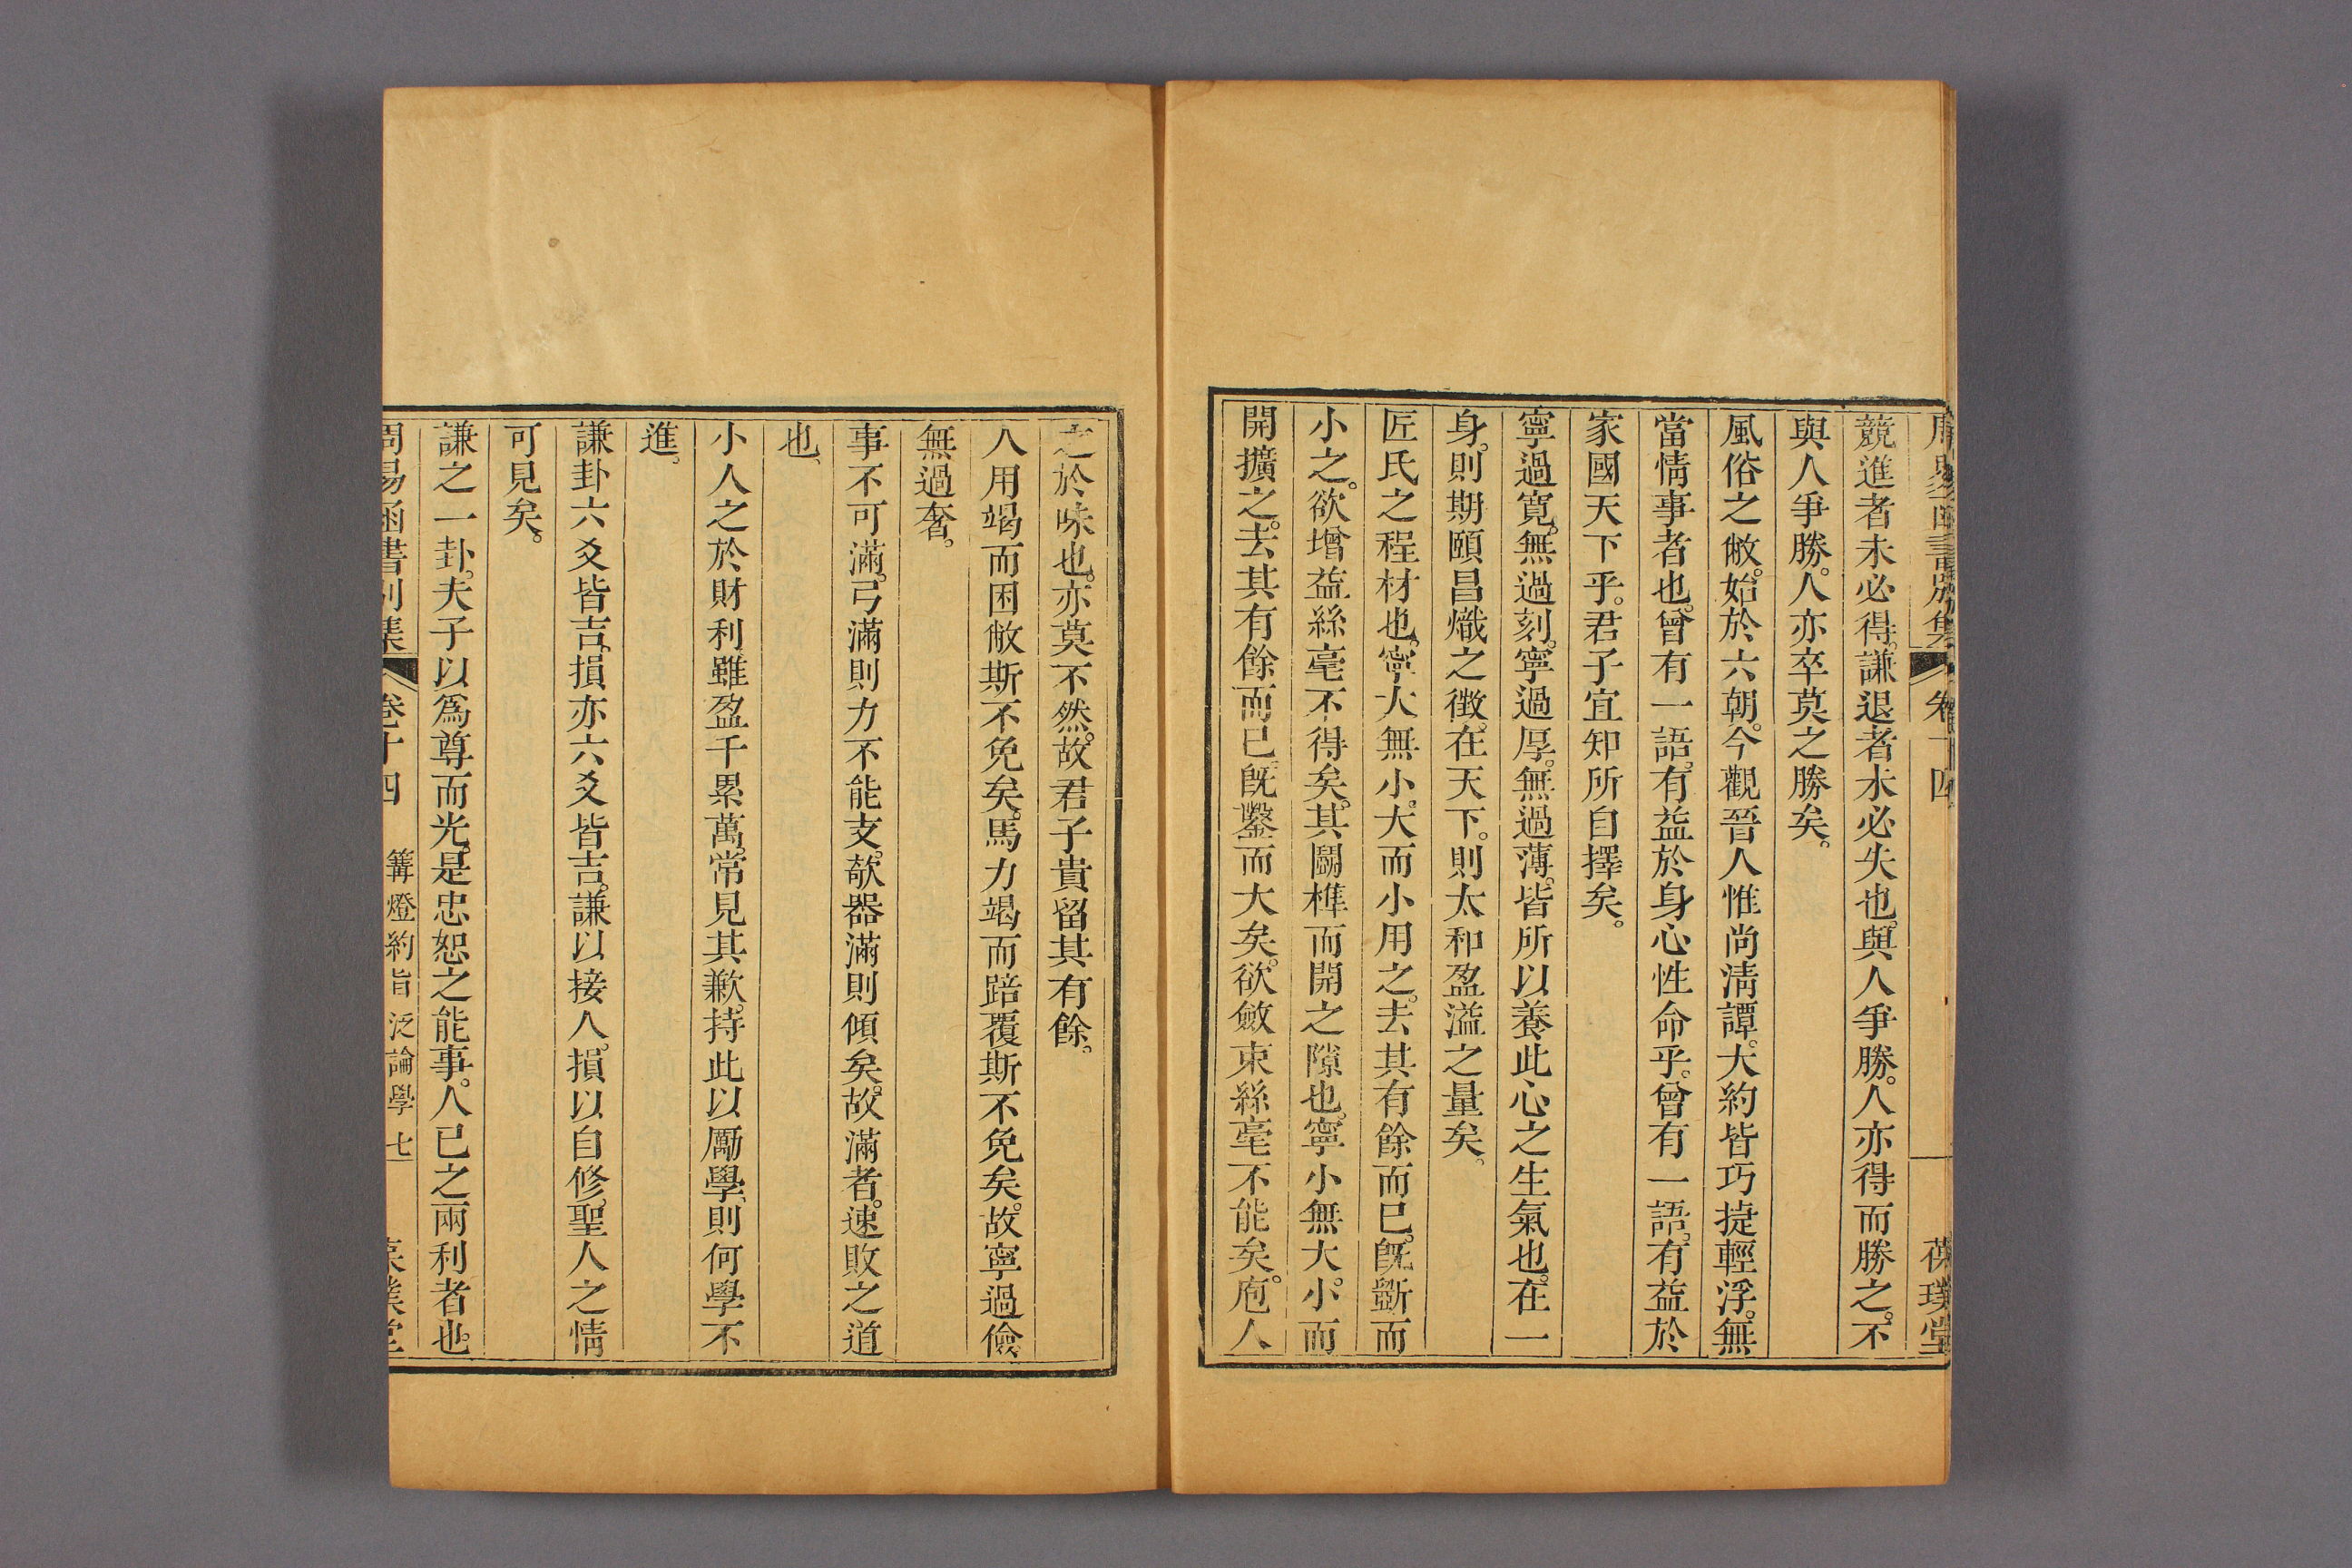 周易函書別集 卷十四 葆璞堂
競進者未必得。謙退者未必失也。與人爭勝。人亦得而勝之。不
與人爭勝。人亦卒莫之勝矣。
風俗之敝。始於六朝。今觀晉人惟尚淸譚。大約皆巧捷輕浮。無
當情事者也。曾有一語。有益於身心性命乎。曾有一語。有益於
家國天下乎。君子宜知所自擇矣。
寧過寬。無過刻。寧過厚。無過薄。皆所以養此心之生氣也。在一
身。則期頤昌熾之徵。在天下。則太和盈溢之量矣。
匠氏之程材也。寧大無小。大而小用之。去其有餘而已。旣斵而
小之。欲增益絲毫不得矣。其鬭榫而開之隙也。寧小無大。小而
開擴之。去其有餘而已。旣鑿而大矣。欲斂束絲毫不能矣。庖人
之於味也。亦莫不然。故君子貴留其有餘。
人用竭而困敝斯不免矣。馬力竭而踣覆斯不免矣。故寧過儉。
無過奢。
事不可滿。弓滿則力不能支。欹器滿則傾矣。故滿者。速敗之道
也。
小人之於財利雖盈千累萬。常見其歉。持此以勵學。則何學不
進。
謙卦六爻皆吉。損亦六爻皆吉。謙以接人。損以自修。聖人之情
可見矣。
謙之一卦。夫子以爲尊而光。是忠恕之能事。人已之兩利者也。
周易函書別集 卷十四 篝燈約旨 泛論學 七 葆璞堂